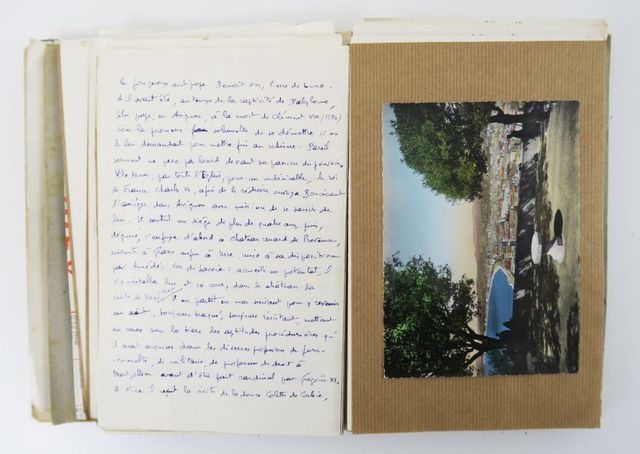 Le fougueux antipape Benoît XIII, Pierre de Luna.
Il avait été, au temps de la captivité de Babylone,
élu pape, en Avignon, à la mort de Clément VII (1394)
sous la promesse solennelle de se démettre si on
le lui demandait pour mettre fin au schisme. Pareil
serment ne pesa pas lourd devant sa passion du pouvoir.
par toute l'Eglise, pour un indésirable, le roi
de France Charles VI, afin de le réduire envoya Boucicaut
l'assiéger dans Avignon avec mission de se saisir de
lui. Il soutint un siège de plus de quatre ans puis,
déguisé, s'enfuya d'abord à Chateaurenard de Provence,
ensuite à Grasse enfin à Nice mise à sa disposition
par Amédée VIII de Savoie : accueilli en potentat, il
s'y installa lui et sa cour, dans le château la
Il en partit en mai suivant pour y revenir
en août, toujours traqué, toujours résistant mettant
en œuvre sous la tiare les aptitudes procédurières qu'
il avait acquises dans les diverses professions de juris-
consulte, de militaire, de professeur de droit à
Montpellier avant d'être fait cardinal par Grégoire XI.
A Nice il reçut la visite de la douce Colette de Corbie,